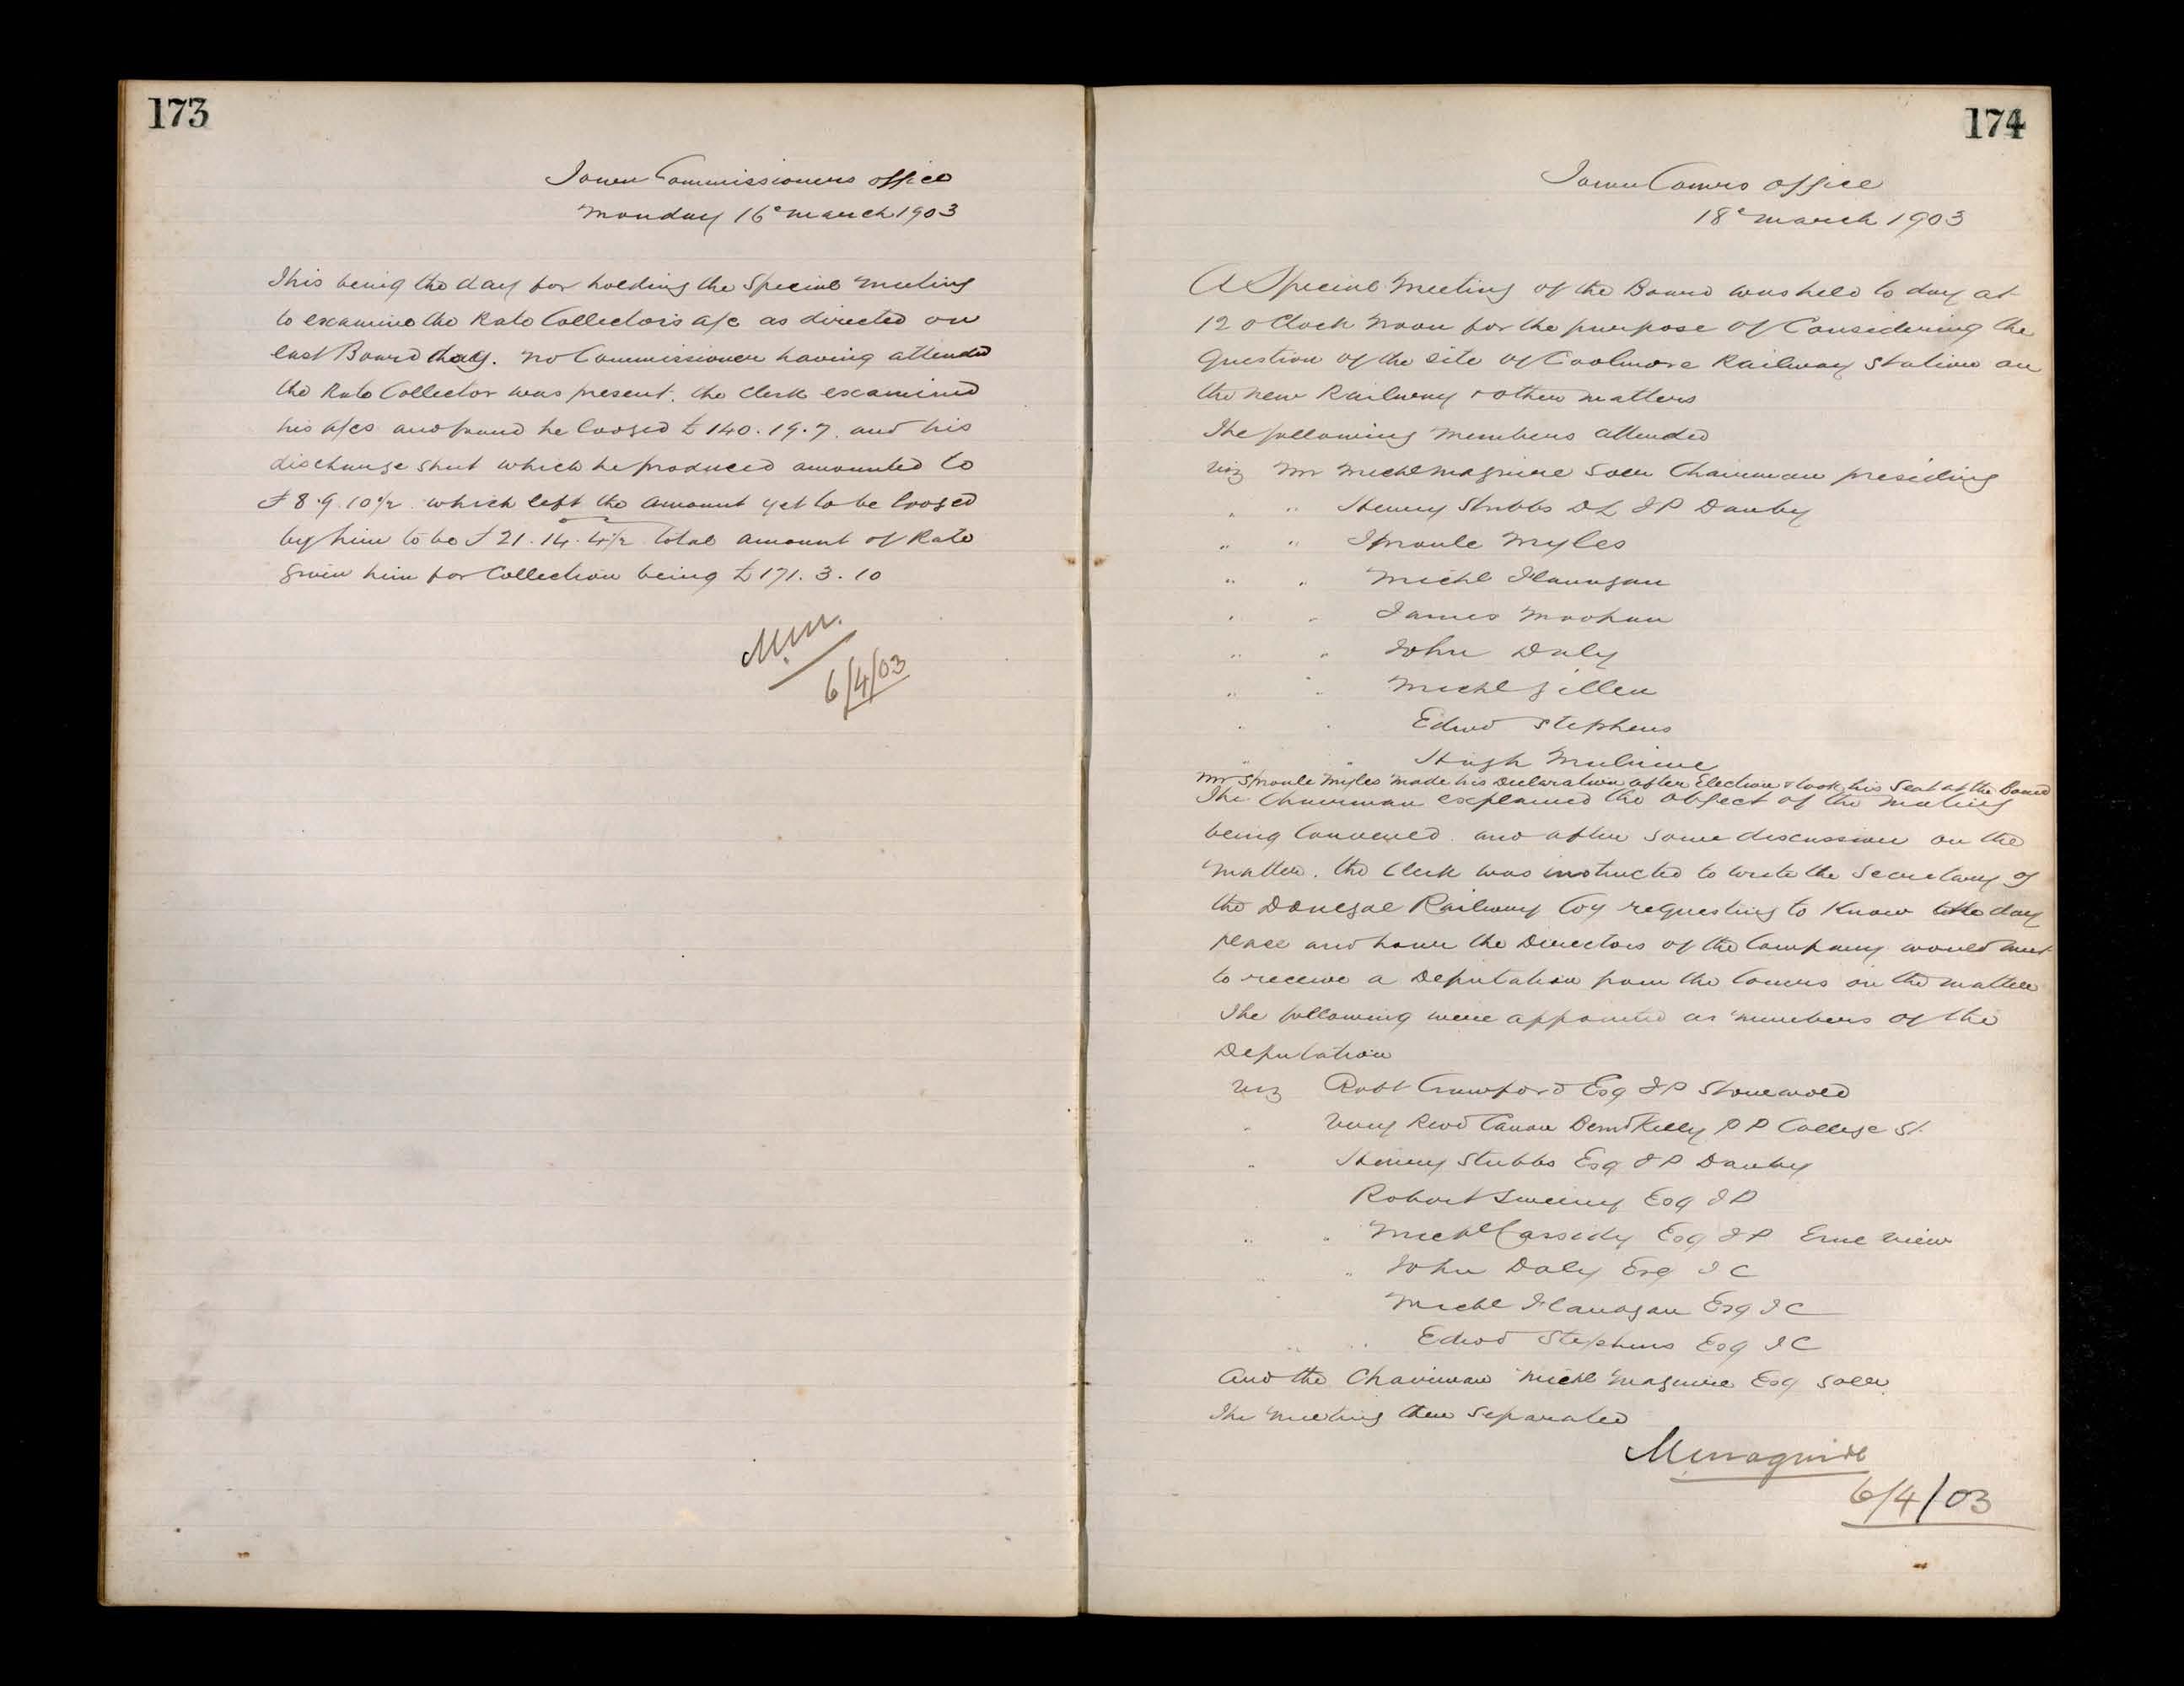 173
Town Commissioners office
Monday 16e March 1903
This being the day for holding the Special Meeting
to examine the Rate Collectors a/c as directed on
last Board day. No Commissioner having attended
the Rate Collector was present. the Clerk examined
his a/cs and found he lodged £140.19.7. and his
discharge sheet which he produced amounted to
£8.9.10½ which left the amount yet to be lodged
by him to be £21.14.4½ total amount of Rate
given him for Collection being £171.3.10
M.M.
6/4/03
174
Town Comrs office
18e March 1903
A Special Meeting of the Board was held to day at
12 oClock Noon for the purpose of Considering the
Question of the site of Coolmore Railway Station on
the new Railway & other matters
The following Members attended
viz Mr Michl Maguire Solr Chairman presiding
" " Henry Stubbs DL JP Danby
" " Sproule Myles
" " Michl Flanagan
" " James Moohan
" " John Daly
" " Michl Gillen
" " Edwd Stephens
" " Hugh
Mr Sproule Myles made his Declaration after Election & took his Seat at the Board
The Chairman explained the object of the Meeting
being Convened. and after some discussion on the
matter. the Clerk was instructed to write the Secretary of
the Donegal Railway Coy requesting to Know the day
place and hour the Directors of the Company would meet
to receive a Deputation from the Comrs on the matter
The following were appointed as members of the
Deputation
viz Robt Crawford Esq JP Stonewold
" Very Revd Canon Kelly P P College St.
" Henry Stubbs Esq JP Danby
Robert Sweeny Esq JP
" " Michl Cassidy Esq JP Erne View
" " John Daly Esq T C
Michl Flanagan Esq T C
" " Edwd Stephens Esq T C
And the Chairman Michl Maguire Esq Solr
The Meeting then Separated
M. Maguire
6/4/03